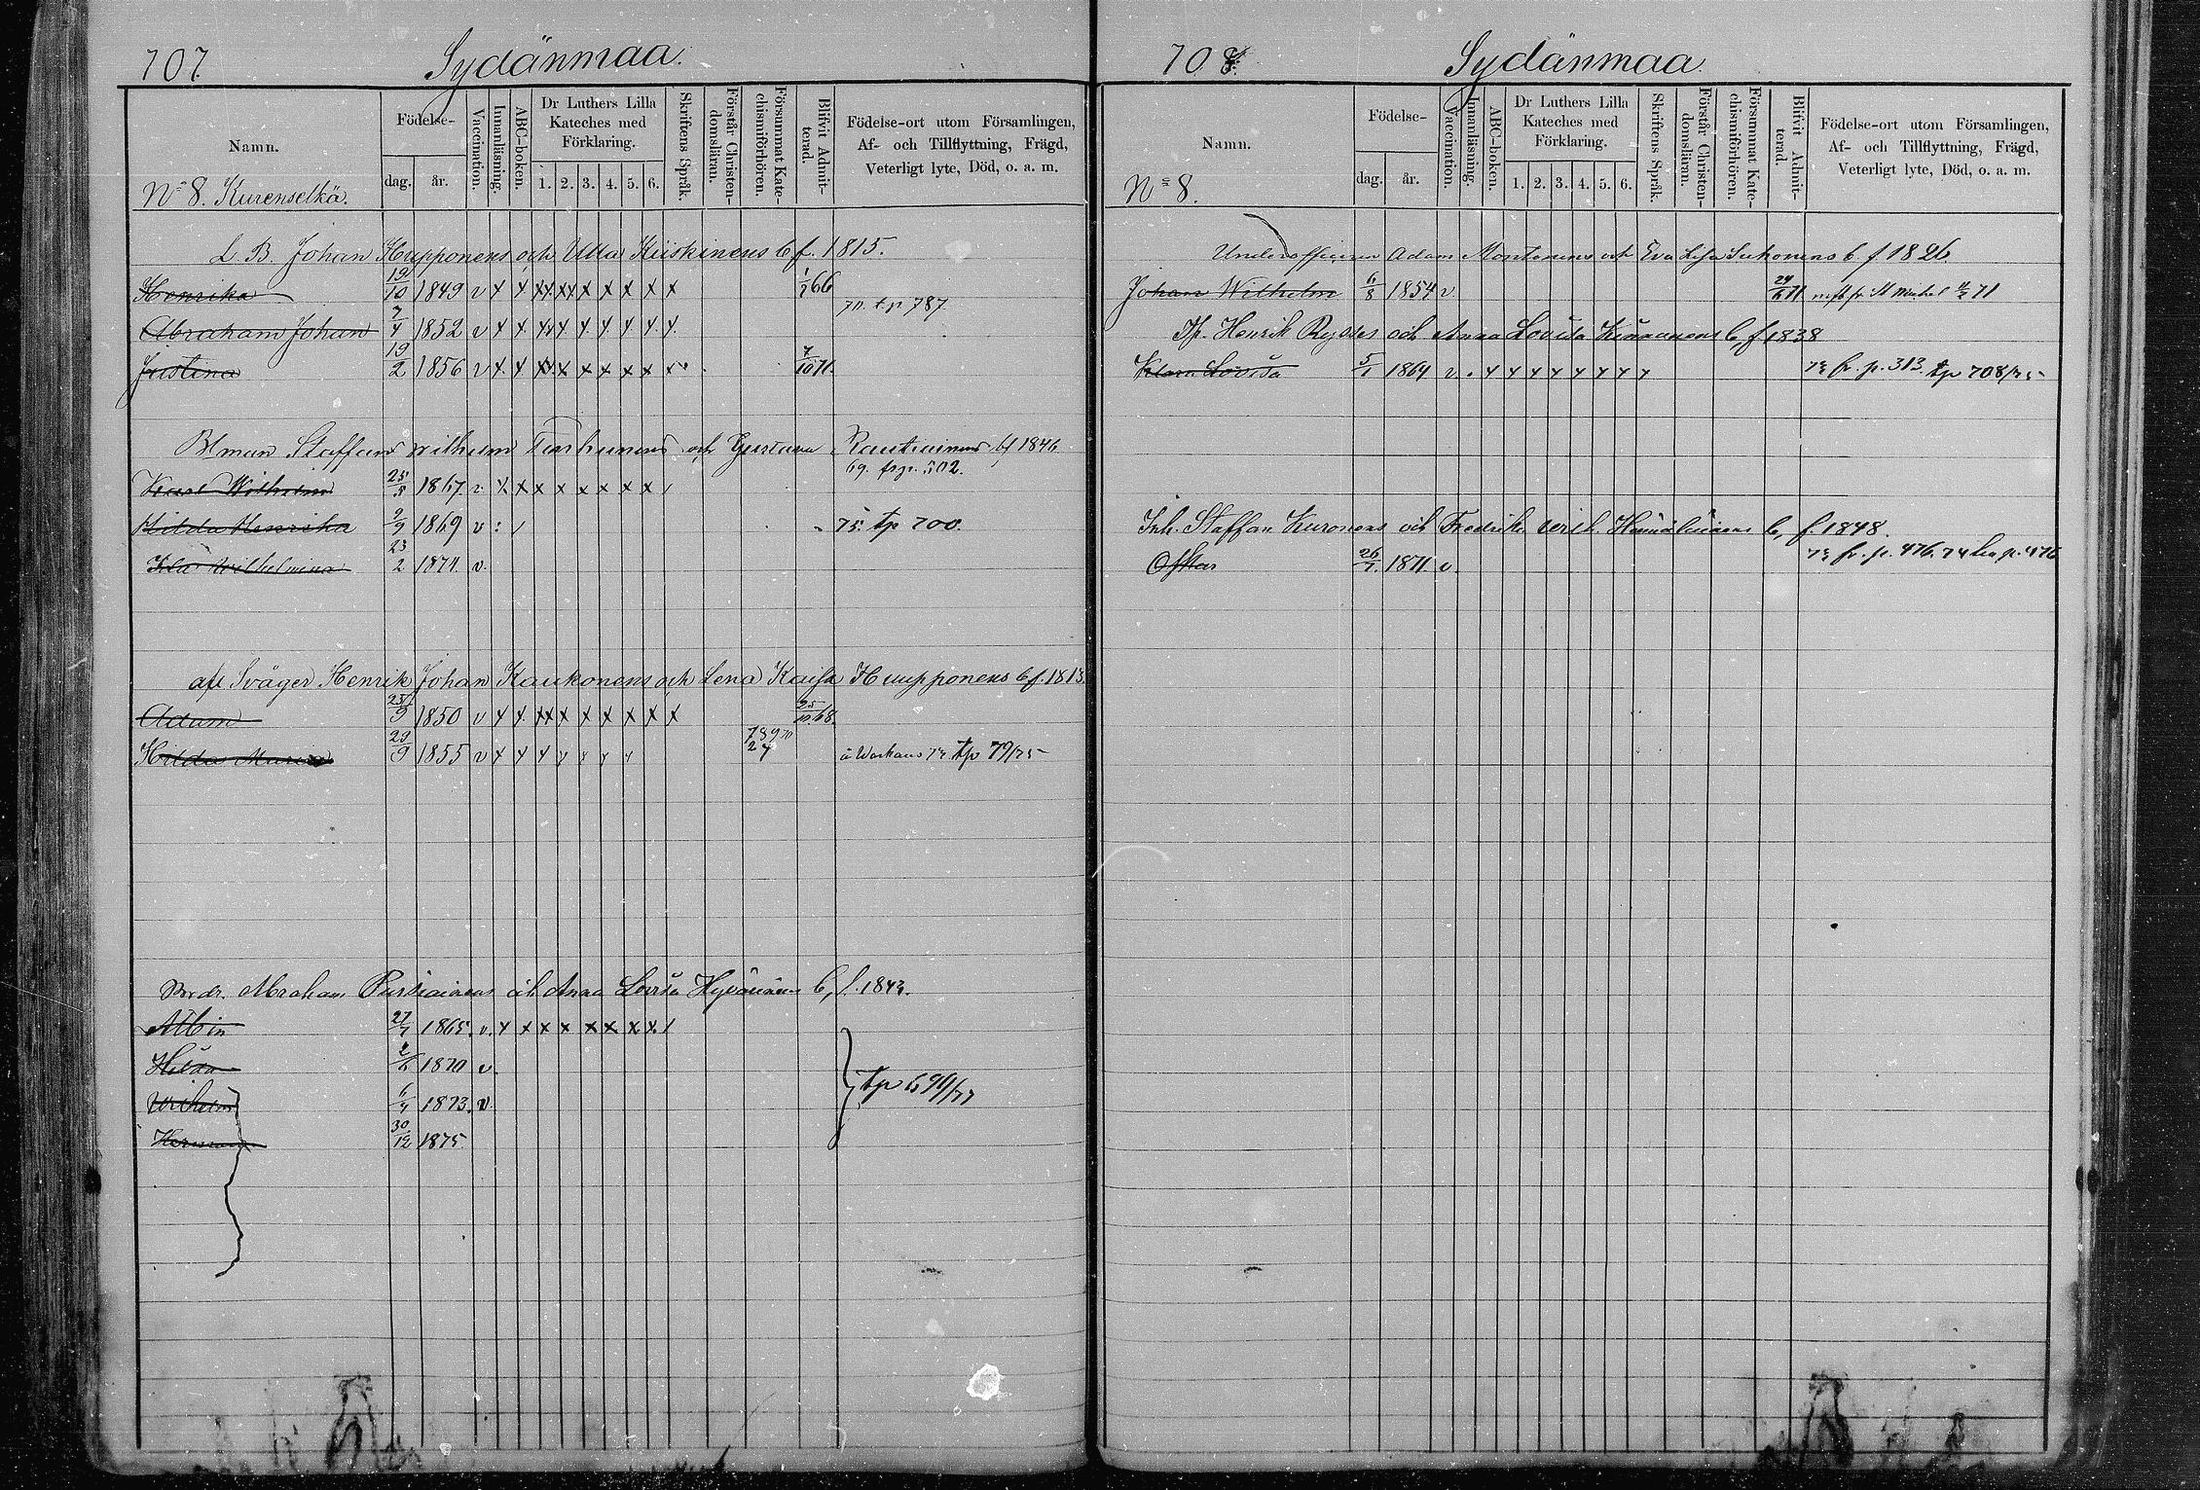 707.
Sydänmaa.
Namn.
Födelse-
dag.
år.
Vaccination.
Innanläsning.
ABC-boken.
Dr Luthers Lilla
Kateches med
Förklaring.
1. 2. 3. 4. 5. 6.
Skriftens Språk.
Förstår Christen-
domsläran.
Försummat Kate-
chismiförhören.
Blifvit Admit-
terad.
Födelse-ort utom Församlingen,
Af- och Tillflyttning, Frägd,
Veterligt lyte, Död, o. a. m.
No 8. Kurenselkä.
L. B. Johan Hupponens och Ulla Kiiskinens b f. 1815.
Henrika 19/10 1849 v x x xx xx x x x x x 66
70. tp 787
Abraham Johan 7/4 1852 v x x xx x x x x x x
Justina 19/2 1856 v x x xx x x x x x x 7/10 71.
Staffan Wilhelm Turhunens och Gustava Rautiainens bf 1846
69. 502.
Karl Wilhelm 25/5 1867 v x x x x x x x x
Hilda Henrika 2/9 1869 v 75. tp 700.
Ida Wilhelmina 23/2 1874 v.
Svåger Henrik Johan Kaukonens och Lena Kaisa Hupponens b f. 1813.
Adam 25/9 1850 v x x xx x x x x x x 25/10 68.
Hilda Maria 29/9 1855 v x x x x x x x tp 79/75
Abraham och Anna Lovisa b, f. 1843.
Albin 27/7 1865. v. x x x x x x x x
Hilda 2/6 1870 v.
Wilhelm 6/4 1873. v.
tp 690/77
Herman 30/12 1875
708.
Sydänmaa.
Namn.
Födelse-
dag.
år.
Vaccination.
Innanläsning.
ABC-boken.
Dr Luthers Lilla
Kateches med
Förklaring.
1. 2. 3. 4. 5. 6.
Skriftens Språk.
Förstår Christen-
domsläran.
Försummat Kate-
chismiförhören.
Blifvit Admit-
terad.
Födelse-ort utom Församlingen,
Af- och Tillflyttning, Frägd,
Veterligt lyte, Död, o. a. m.
No 8.
Underofficeren Adam Montonens och Eva Lisa b f 1826
Johan Wilhelm 6/8 1854 v. fr. St Michel 71
Henrik och Anna Lovisa b, f 1838
Klara Lovisa 5/1 1864 v. x x x x x x x x fr. p. 313. tp 708/75
Inh. Staffan Kuronens och Fredrika Wilh. Hämäläinens b, f. 1848.
fr. p. 476. 74 p. 476
Oskar 26/7. 1871 v.